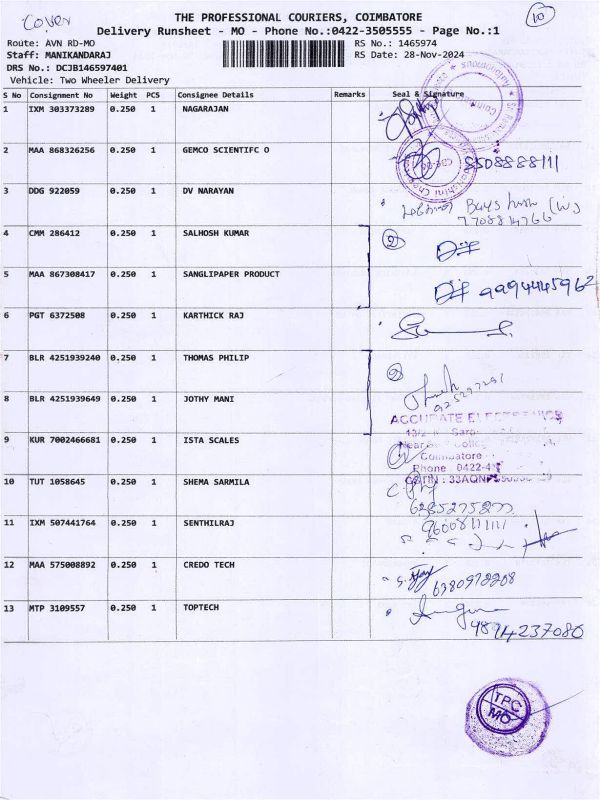 Cover
10
THE PROFESSIONAL COURIERS, COIMBATORE
Delivery Runsheet - MO - Phone No.:0422-3505555 - Page No.:1
Route: AVN RD-MO RS No.: 1465974
Staff: MANIKANDARAJ RS Date: 28-Nov-2024
DRS No.: DCJB146597401
Vehicle: Two Wheeler Delivery
S No Consignment No Weight PCS Consignee Details Remarks Seal & Signature
1 IXM 303373289 0.250 1 NAGARAJAN
2 MAA 868326256 0.250 1 GEMCO SCIENTIFC O 8508888111
3 DDG 922059 0.250 1 DV NARAYAN
7708814766
4 CMM 286412 0.250 1 SALHOSH KUMAR 2
5 MAA 867308417 0.250 1 SANGLIPAPER PRODUCT 9994445962
6 PGT 6372508 0.250 1 KARTHICK RAJ
7 BLR 4251939240 0.250 1 THOMAS PHILIP 2
8 BLR 4251939649 0.250 1 JOTHY MANI
ACCURATE
9 KUR 7002466681 0.250 1 ISTA SCALES
Coimbatore
Phone 0422-4
10 TUT 1058645 0.250 1 SHEMA SARMILA
11 IXM 507441764 0.250 1 SENTHILRAJ
12 MAA 575008892 0.250 1 CREDO TECH
6380972208
13 MTP 3109557 0.250 1 TOPTECH
TPC
MO